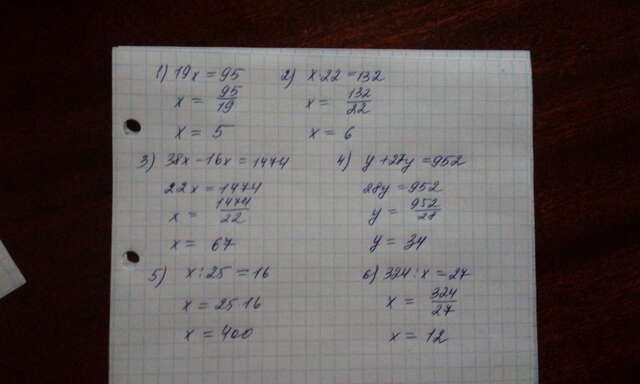 1) 19x = 95
x = 95/19
x = 5
2) x·22 = 132
x = 132/22
x = 6
3) 38x - 16x = 1474
22x = 1474
x = 1474/22
x = 67
4) y + 27y = 952
28y = 952
y = 952/28
y = 34
5) x : 25 = 16
x = 25·16
x = 400
6) 324 : x = 27
x = 324/27
x = 12